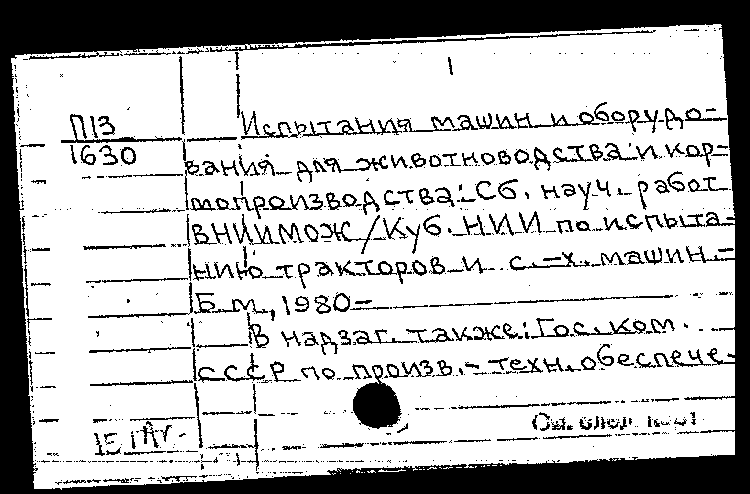 П13
1630
Испытания машин и оборудо-
вания для животноводства и кор-
мопроизводства: Сб. науч. работ
ВНИИМОЖ/Куб. НИИ по испыта-
нию тракторов и с.-х. машин.-
Б.м., 1980-
В надзаг. также: Гос. ком.
СССР по произв.-техн. обеспече-
См. след.